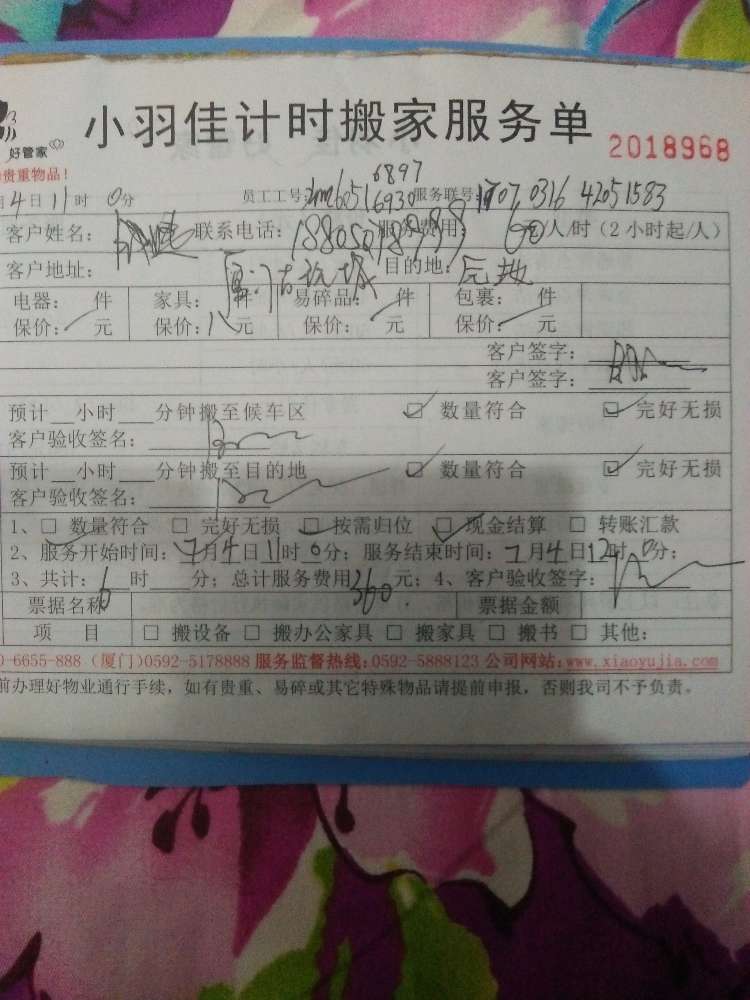 小羽佳计时搬家服务单
2018968
好管家
贵重物品!
月4日11时0分 员工工号: 6897 6930 服务联号: 0316 42051583
客户姓名: 联系电话: 服务费用: 60元/人/时(2小时起/人)
客户地址: 目的地:
电器: 件 家具: 件 易碎品: 件 包裹: 件
保价: 元 保价: 元 保价: 元 保价: 元
客户签字:
客户签字:
预计 小时 分钟搬至候车区 ☑ 数量符合 ☑ 完好无损
客户验收签名:
预计 小时 分钟搬至目的地 ☑ 数量符合 ☑ 完好无损
客户验收签名:
1、☑ 数量符合 □ 完好无损 ☑ 按需归位 ☑ 现金结算 □ 转账汇款
2、服务开始时间:7月4日11时0分;服务结束时间:7月4日12时0分;
3、共计:6时 分;总计服务费用360元;4、客户验收签字:
票据名称 票据金额
项 目 □ 搬设备 □ 搬办公家具 □ 搬家具 □ 搬书 □ 其他:
0-6655-888 (厦门)0592-5178888 服务监督热线:0592-5888123 公司网站:www.xiaoyujia.com
前办理好物业通行手续,如有贵重、易碎或其它特殊物品请提前申报,否则我司不予负责。